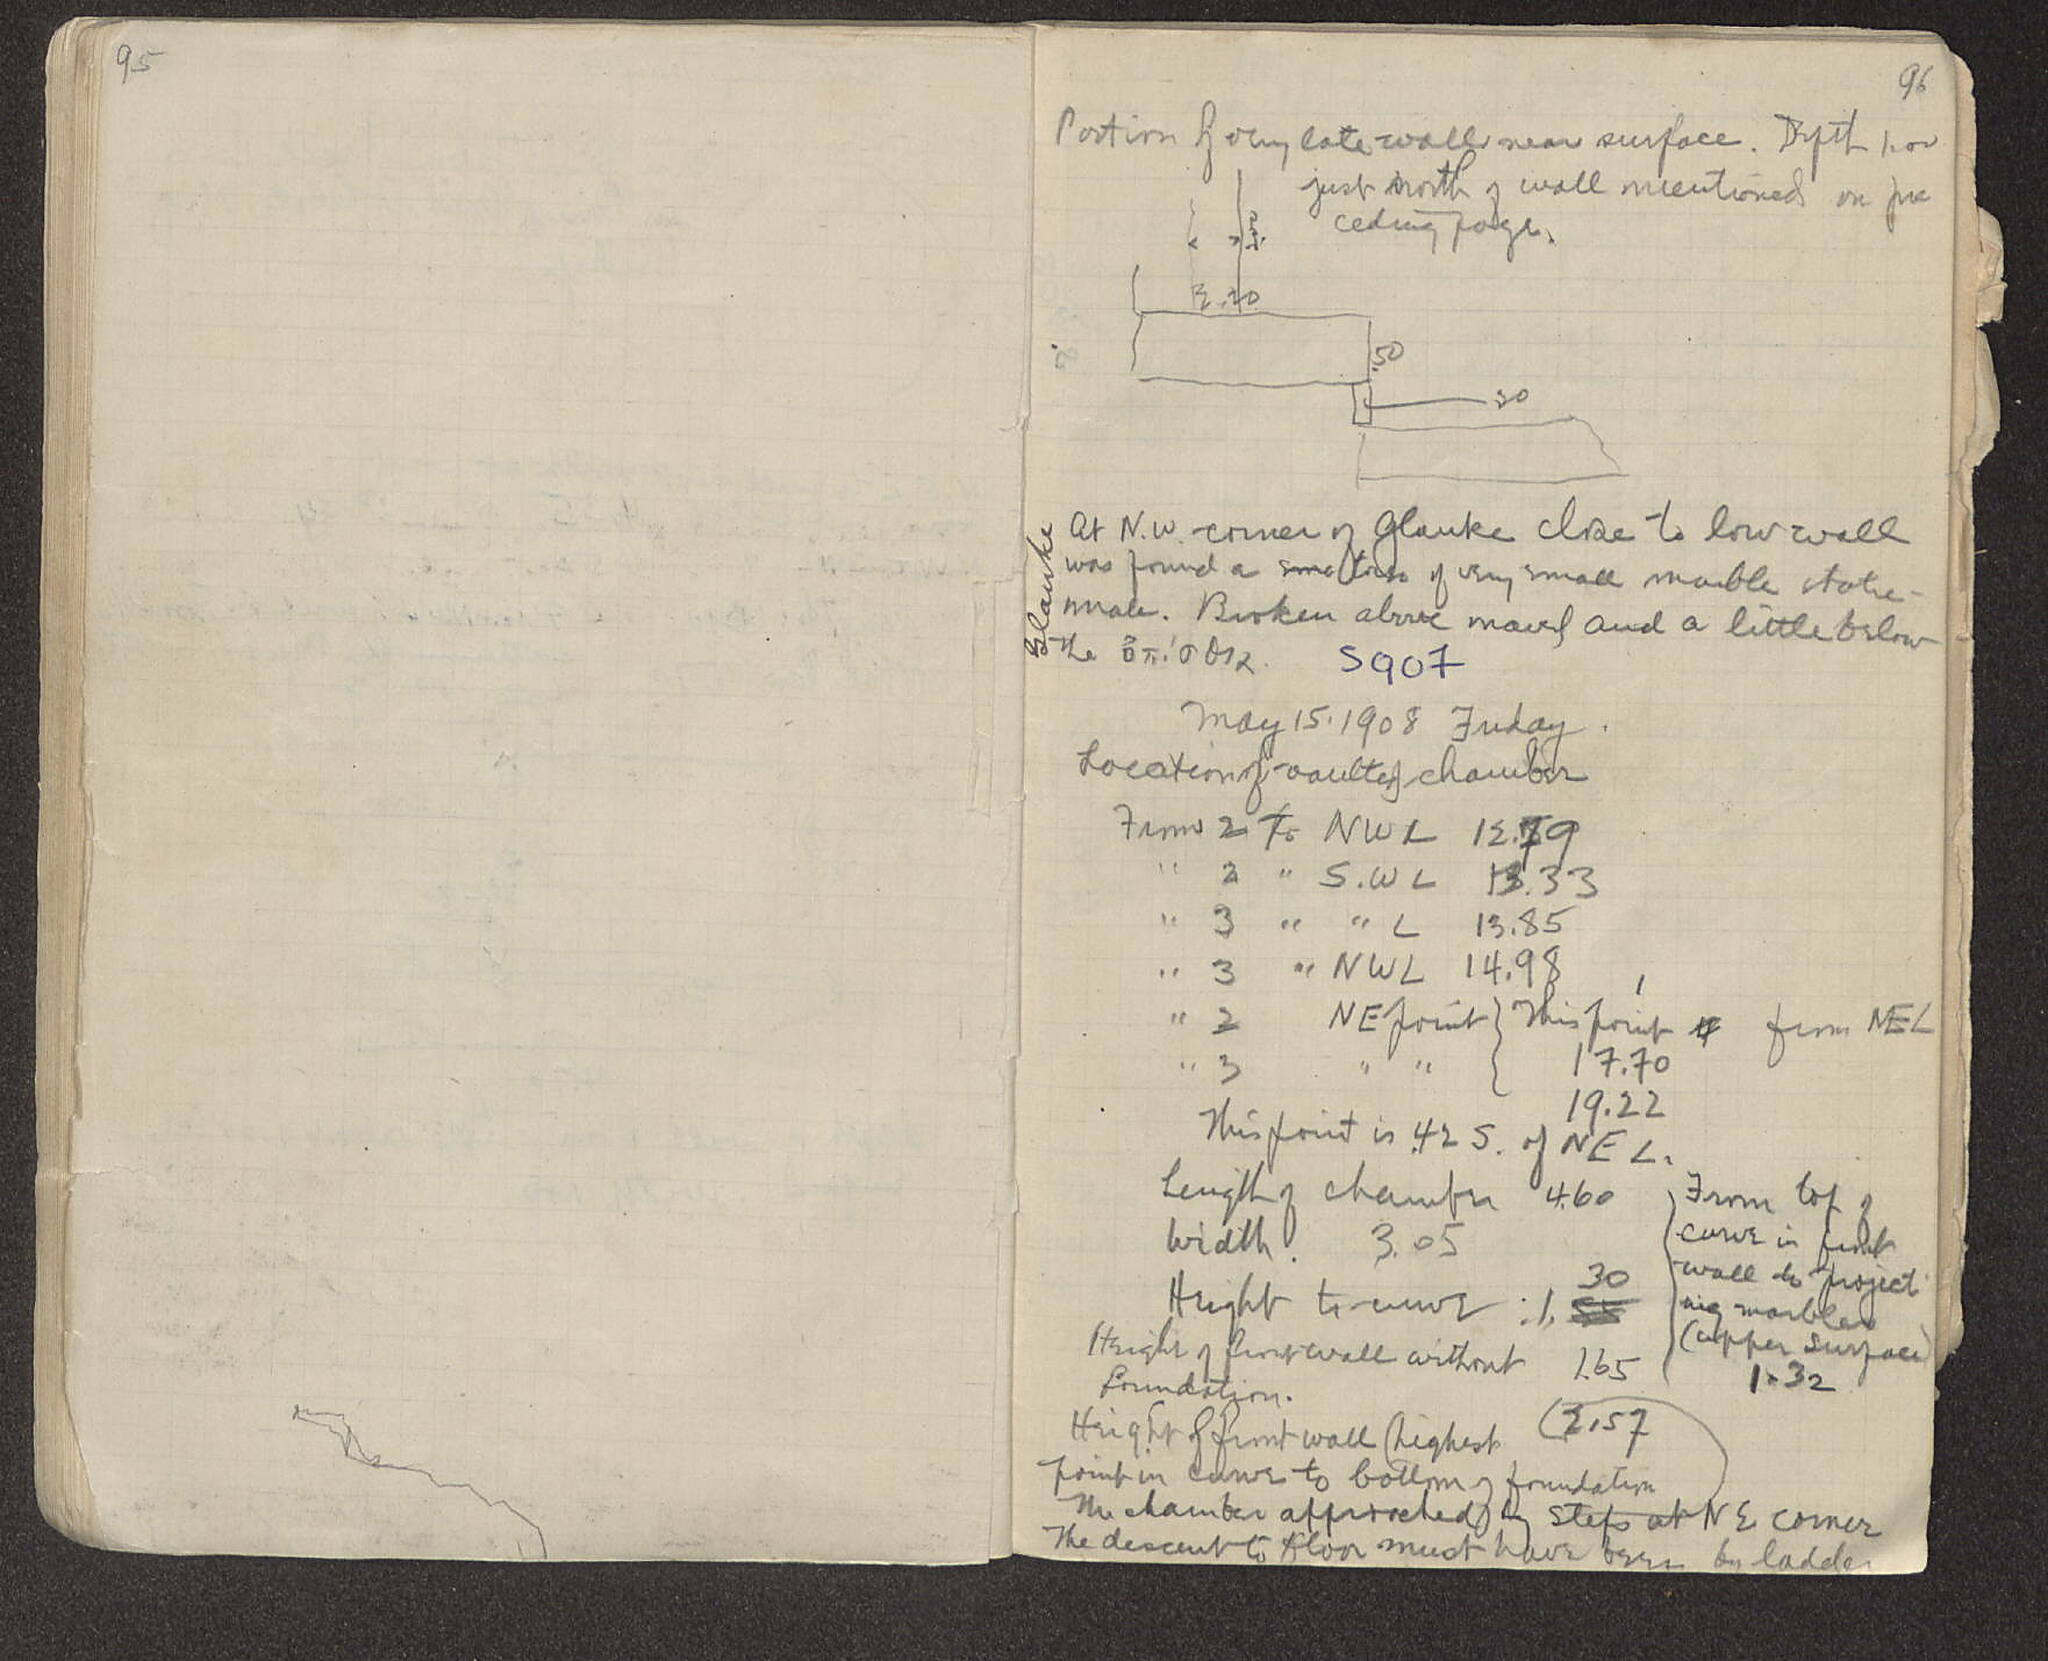 95
96
Portion of very late wall near surface. Depth
just north of wall mentioned on pre
ceding page.
2.20
.50
30
Glauke
At N.W. corner of Glauke close to low wall
was found a torso of very small marble statue
male. Broken above navel and a little below
the ὄπισθια. S907
May 15. 1908 Friday.
Location of vaulted chamber
From 2 to NWL 12.79
" 2 " S.WL 13.33
" 3 " " L 13.85
" 3 " NWL 14.98
" 2 NE point } This point from NEL
" 3 " " } 17.70
19.22
This point is .42 S. of NEL.
Length of chamber 4.60
Width. 3.05
Height to curve : 1.30
Height of front wall without 1.65
foundation.
From top of
curve in front
wall to project
ing marble
(upper surface)
1.32
Height of front wall (highest (2.57
point in curve to bottom of foundation
The chamber approached by steps at NE corner
The descent to floor must have been by ladder